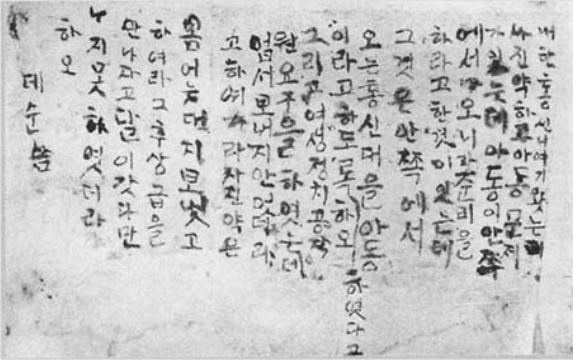 내한통신니여기왓는데
사진약하고아동문제
가잇는데아동이안쪽
에서나오니라준리을
하라고한것이잇는데
그것은안쪽에서
오는통신대을아동
이라고하도록하오 하엿다고
그리고여성정치공작
원요구을하엿는데
업서보내지안엇더라
고하여라사진약은
몸어는대지보냇고
하여라그후상급을
만나자고달이갓다만
누지못하엿더라
하오
데순씀